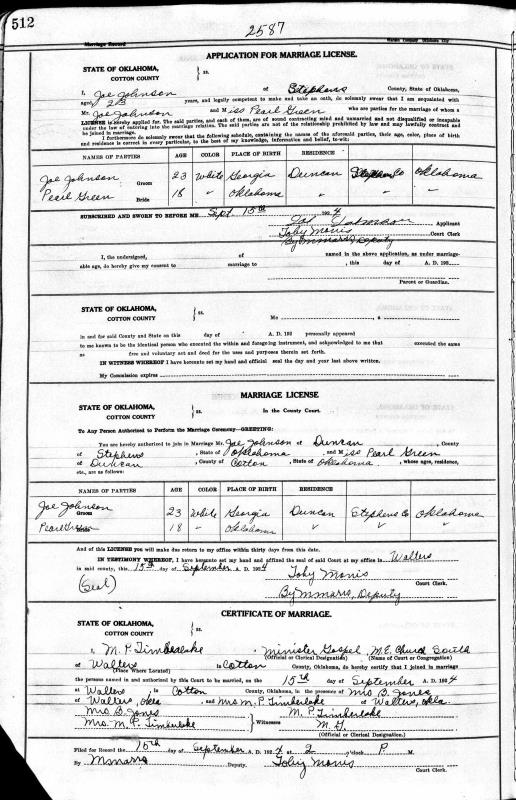 512
2587
Marriage Record
APPLICATION FOR MARRIAGE LICENSE.
STATE OF OKLAHOMA,
COTTON COUNTY } ss.
I, Joe Johnson of Stephens County, State of Oklahoma,
aged 23 years, and legally competent to make and take an oath, do solemnly swear that I am acquainted with
Mr. Joe Johnson and Miss Pearl Green who are parties for the marriage of whom a
LICENSE is hereby applied for. The said parties, and each of them, are of sound contracting mind and unmarried and not disqualified or incapable
under the law of entering into the marriage relation. The said parties are not of the relationship prohibited by law and may lawfully contract and
be joined in marriage.
I furthermore do solemnly swear that the following schedule, containing the names of the aforesaid parties, their age, color, place of birth
and residence is correct in every particular, to the best of my knowledge, information and belief, to-wit:
NAMES OF PARTIES AGE COLOR PLACE OF BIRTH RESIDENCE
Joe Johnson Groom 23 White Georgia Duncan Stephens Co Oklahoma
Pearl Green Bride 18 " Oklahoma " " "
SUBSCRIBED AND SWORN TO BEFORE ME Sept 15th 1924
Joe Johnson Applicant
Toby Morris Court Clerk
By M Marrs, Deputy
I, the undersigned, of named in the above application, as under marriage-
able age, do hereby give my consent to marriage to , this day of A. D. 192
Parent or Guardian.
STATE OF OKLAHOMA,
COTTON COUNTY } ss. Me , a
in and for said County and State on this day of A. D. 192 personally appeared
to me known to be the identical person who executed the within and foregoing instrument, and acknowledged to me that executed the same
as free and voluntary act and deed for the uses and purposes therein set forth.
IN WITNESS WHEREOF I have hereunto set my hand and official seal the day and year last above written.
My Commission expires
MARRIAGE LICENSE
STATE OF OKLAHOMA,
COTTON COUNTY } ss. In the County Court.
To Any Person Authorized to Perform the Marriage Ceremony—GREETING:
You are hereby authorized to join in Marriage Mr. Joe Johnson of Duncan, County
of Stephens, State of Oklahoma, and Miss Pearl Green
of Duncan, County of Cotton, State of Oklahoma, whose ages, residence,
etc., are as follows:
NAMES OF PARTIES AGE COLOR PLACE OF BIRTH RESIDENCE
Joe Johnson Groom 23 White Georgia Duncan Stephens Co Oklahoma
Pearl Green Bride 18 " Oklahoma " " "
And of this LICENSE you will make due return to my office within thirty days from this date.
IN TESTIMONY WHEREOF, I have hereunto set my hand and affixed the seal of said Court at my office in Walters
in said county, this 15th day of September A. D. 1924
(Seal) Toby Morris
Court Clerk.
By M marrs, Deputy
CERTIFICATE OF MARRIAGE.
STATE OF OKLAHOMA,
COTTON COUNTY } ss.
I, M. P. Timberlake, Minister Gospel, M.E. Church South
(Official or Clerical Designation) (Name of Court or Congregation)
of Walters in Cotton County, Oklahoma, do hereby certify that I joined in marriage
(Place Where Located)
the persons named in and authorized by this Court to be married, on the 15th day of September A. D. 1924
at Walters, in Cotton County, Oklahoma, in the presence of Mrs B. Jones
of Walters, Okla, and Mrs M. P. Timberlake of Walters, Okla.
Mrs B. Jones M. P. Timberlake
Mrs. M. P. Timberlake } Witnesses M. G.
(Official or Clerical Designation.)
Filed for Record the 15th day of September A. D. 1924 at 2 o'clock P M.
By M marrs Deputy. Toby Morris
Court Clerk.